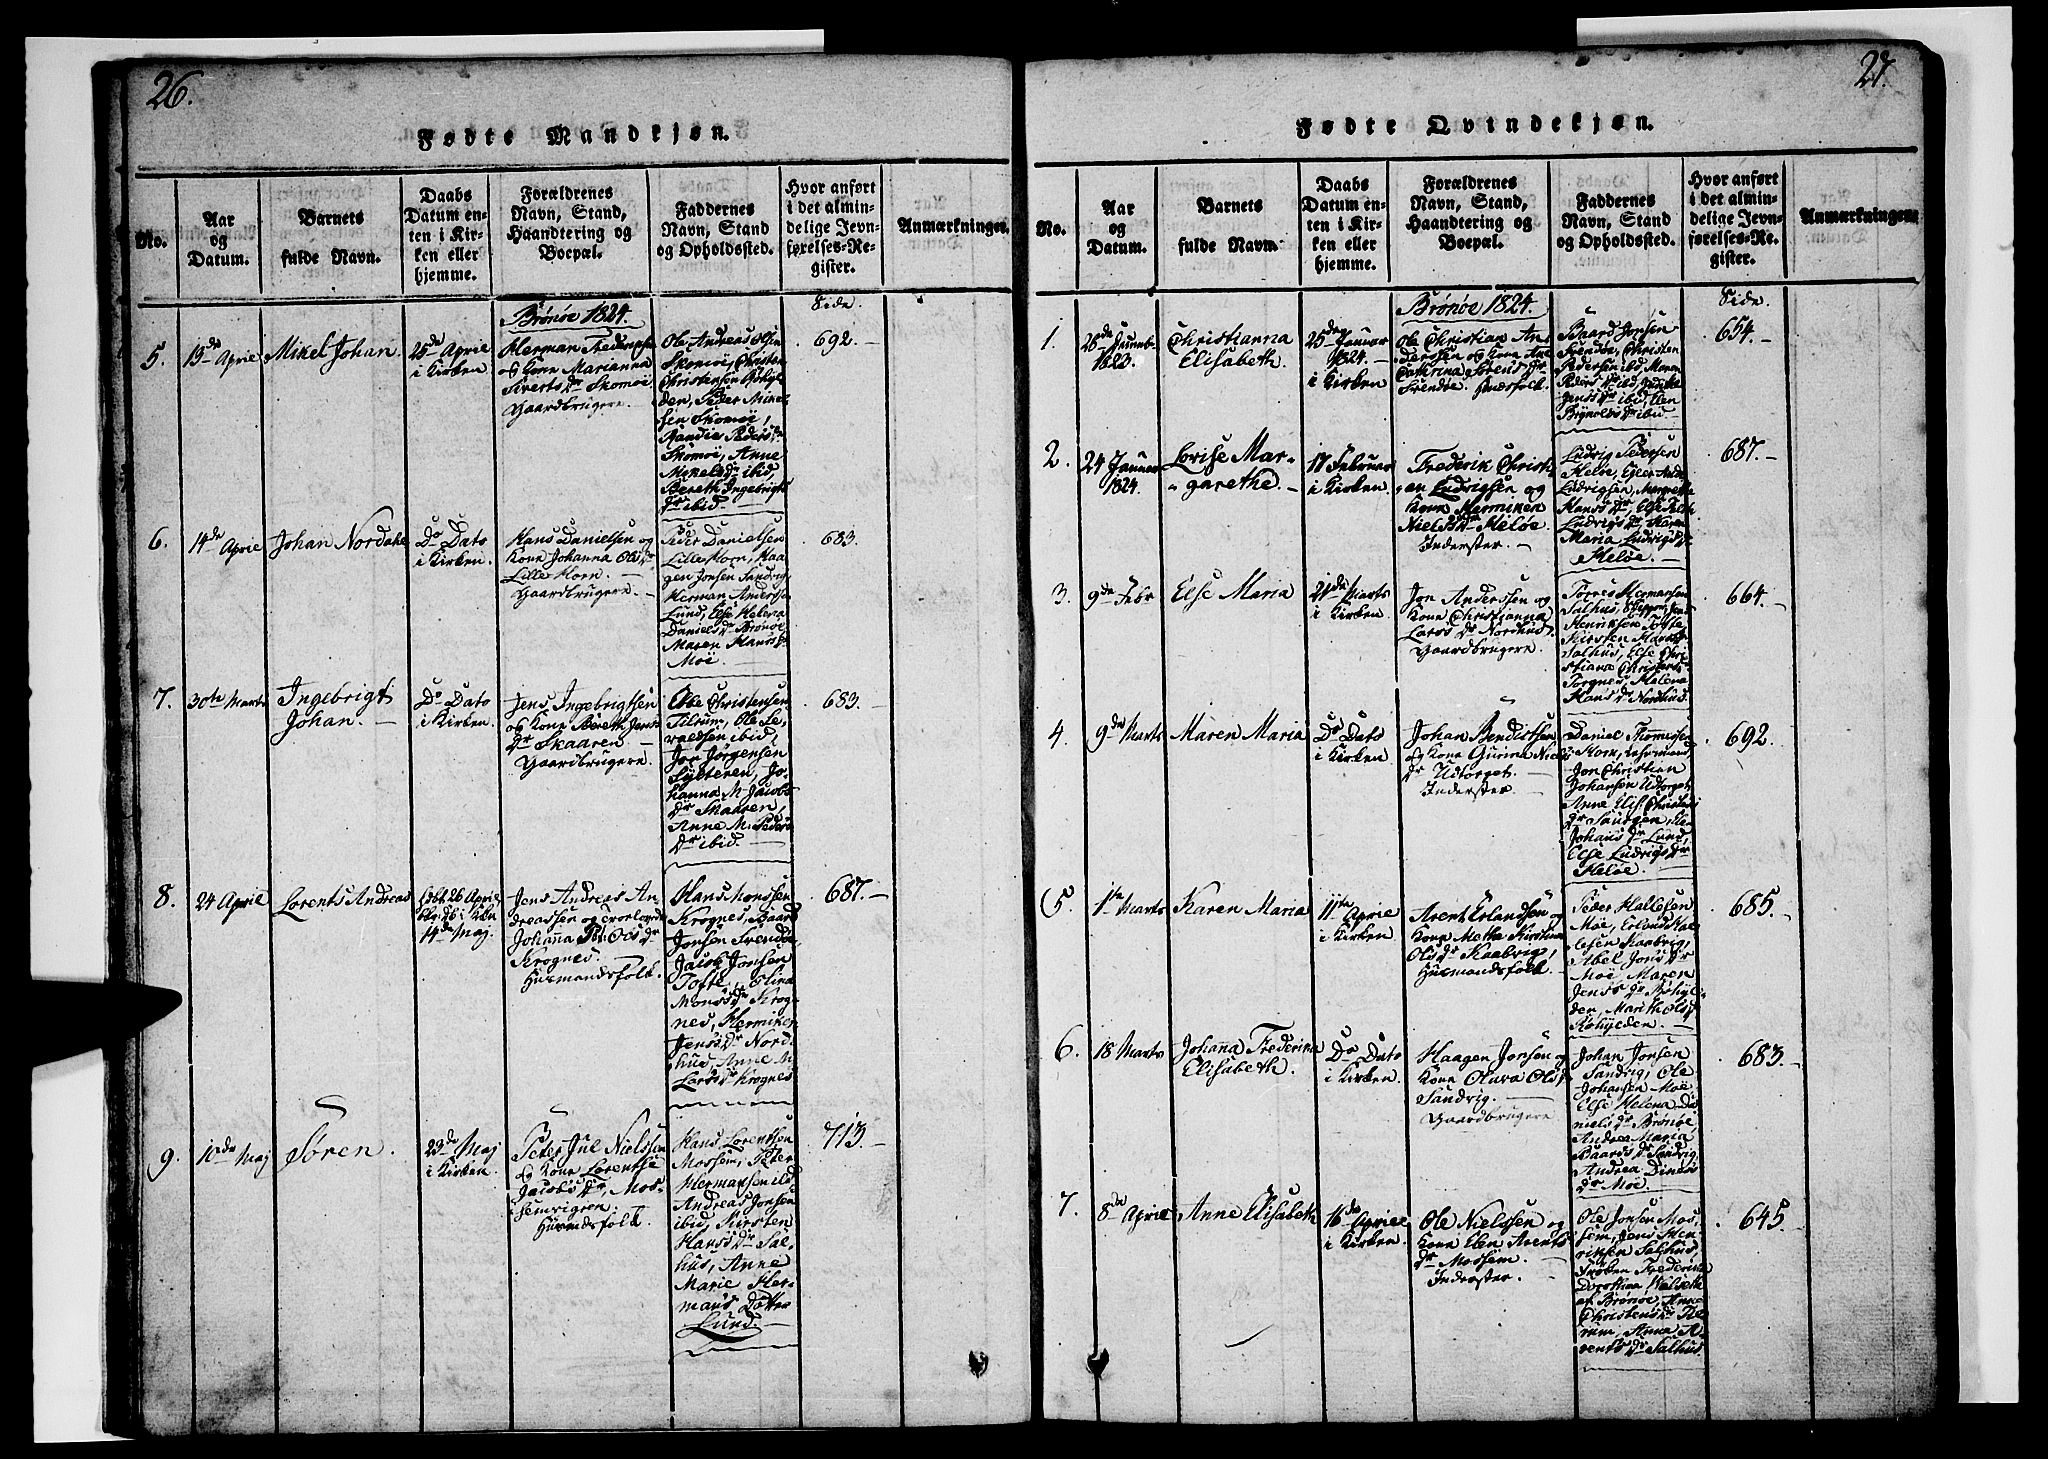 26.
Fødte Mandkjøn.
No.
Aar
og
Datum.
Barnets
fulde Navn.
Daabs
Datum en-
ten i Kir-
ken eller
hjemme.
Forældrenes
Navn, Stand,
Haandtering og
Boepæl.
Faddernes
Navn, Stand
og Opholdssted.
Hvor anført
i det almin-
delige Jevn-
førelses-Re-
gister.
Anmærkninger.
Brönöe 1824.
Side.
5.
Mikel Johan.
25de April
i Kirken
Herman
og Kone Marianna
Siverts Dr Skomoe
Gaardbrugere.
Ole Andreas Olsen
Skomoe, Christen
Christensen
den, Peder Mikel-
sen Skomoe,
Peders Dr
Skomoe, Anne
Mikels Dr ibid,
Bereth Ingebrigts
Dr ibid.
692.
6.
14de April
Johan
Do Dato
i Kirken.
Hans Danielsen og
Kone Johanna Ols Dr
Lille Horn.
Gaardbrugere.
Peder Danielsen
Lille Horn, Haa-
gen Jonsen Sandvig
Herman
Lund, Else Helena
Daniels Dr Brönöe
Maren Hans Dr
Moe.
683.
7.
30te Marts
Ingebrigt
Johan.
Do Dato
i Kirken.
Jens Ingebrigtsen
og Kone Bereth Jens
Dr Skaaren
Gaardbrugere.
Christensen
Tilrum, Ole
ibid,
Jon Jörgensen
Jo-
hanna M. Jacobs
Dr Skaaren,
Anne M. Peders
Dr ibid.
683.
8.
24 April
Lorents Andreas
26 April
14de Maj
Jens Andreas An-
dreassen og
Johanna Ols Dr
Krognes.
Huusmandsfolk.
Hans Monssen
Krognes, Baard
Jonsen
Jacob Jonsen
Tofte, Elina
Mons Dr Krog-
nes,
Jens Dr Nord-
hus, Anne M.
Lars Dr Krognes
687.
9.
10de Maj
Sören.
23de Maj
i Kirken.
Peter Jul Nielssen
og Kone Lorentse
Jacobs Dr Mos-
semvigen.
Hans Lorentsen
Mossem, Peter
Hermansen
Andreas Jonsen
ibid, Kirsten
Hans Dr Sal-
hus, Anne
Marie Her-
mans Datter
Lund.
713.
27.
Fødte Qvindekjøn.
No.
Aar
og
Datum.
Barnets
fulde Navn.
Daabs
Datum en-
ten i Kir-
ken eller
hjemme.
Forældrenes
Navn, Stand,
Haandtering og
Boepæl.
Faddernes
Navn, Stand
og Opholdssted.
Hvor anført
i det almin-
delige Jevn-
førelses-Re-
gister.
Anmærkninger.
Brönöe 1824.
Side.
1.
1823.
Christianna
Elisabeth.
25de Januar
1824.
i Kirken
Ole Christian An-
dersen og Kone Ane
Cathrina Sörens Dr
Baard Jonsen
Christen
Pedersen ibid, Maren
Peders Dr ibid,
ibid, Elen
Brynels Dr ibid
654.
2.
24 Januar
1824.
Lovise Mar-
garethe.
17 Februar
i Kirken
Frederik Christi-
an Ludvigsen og
Kone
Niels Dr Heløe.
Inderster.
Ludvig Pedersen
Heløe,
Ludvigsen, Margrethe
Hans Dr,
Ludvigs Dr, Karen
Maria Ludvigs Dr
Heløe.
687.
3.
9de Febr
Else Maria
21de Marts
i Kirken
Jon Anderssen og
Kone Christianna
Lars Dr Nordhus.
Gaardbrugere.
Torres Hermansen
Salhus,
Henriksen Tofte
Kirsten Hans Dr
Salhus, Else Chri-
stiana
Torgnes, Helena
Hans Dr Nordhus.
664.
4.
9de Marts
Maren Maria
Do Dato
i Kirken
Johan Bendixsen
og Kone Gurina Niels
Dr Udtorget.
Inderster.
Daniel Thomassen
Horn,
Jon Christian
Johansen Udtorget
Anne Elis: Christens
Dr
Johans Dr Lund,
Else Ludvigs Dr
Heløe.
692.
5.
1ste Marts
Karen Maria
11te April
i Kirken
Arent Erlandsen og
Kone Metha Kirstina
Ols Dr Kaabvig,
Huusmandsfolk
Peder Hallesen
Moe, Erlund
Kaabvig,
Abel Jons Dr
Moe Maren
Jens Dr
den, Marith Ols Dr
685.
6.
18 Marts
Johana Frederica
Elisabeth.
Do Dato
i Kirken.
Haagen Jonsen og
Kone Olava Ols Dr
Sandvig.
Gaardbrugere
Johan Jonsen
Sandvig, Ole
Johansen Moe
Else Helena Da-
niels Dr Brönöe,
Andrea Maria
Baards Dr Sandvig,
Andrea
Dr Moe.
683.
7.
8de April
Anne Elisabeth
16de April
i Kirken.
Ole Nielssen og
Kone Elen Arents
Dr Mossem.
Inderster.
Ole Jonsen Mos-
sem, Jens Hen-
riksen Salhus,
Fröken Frederica
Dorothea
af Brönöe, Anne
Christens Dr Til-
rum, Anna A-
rents Dr Salhus.
645.